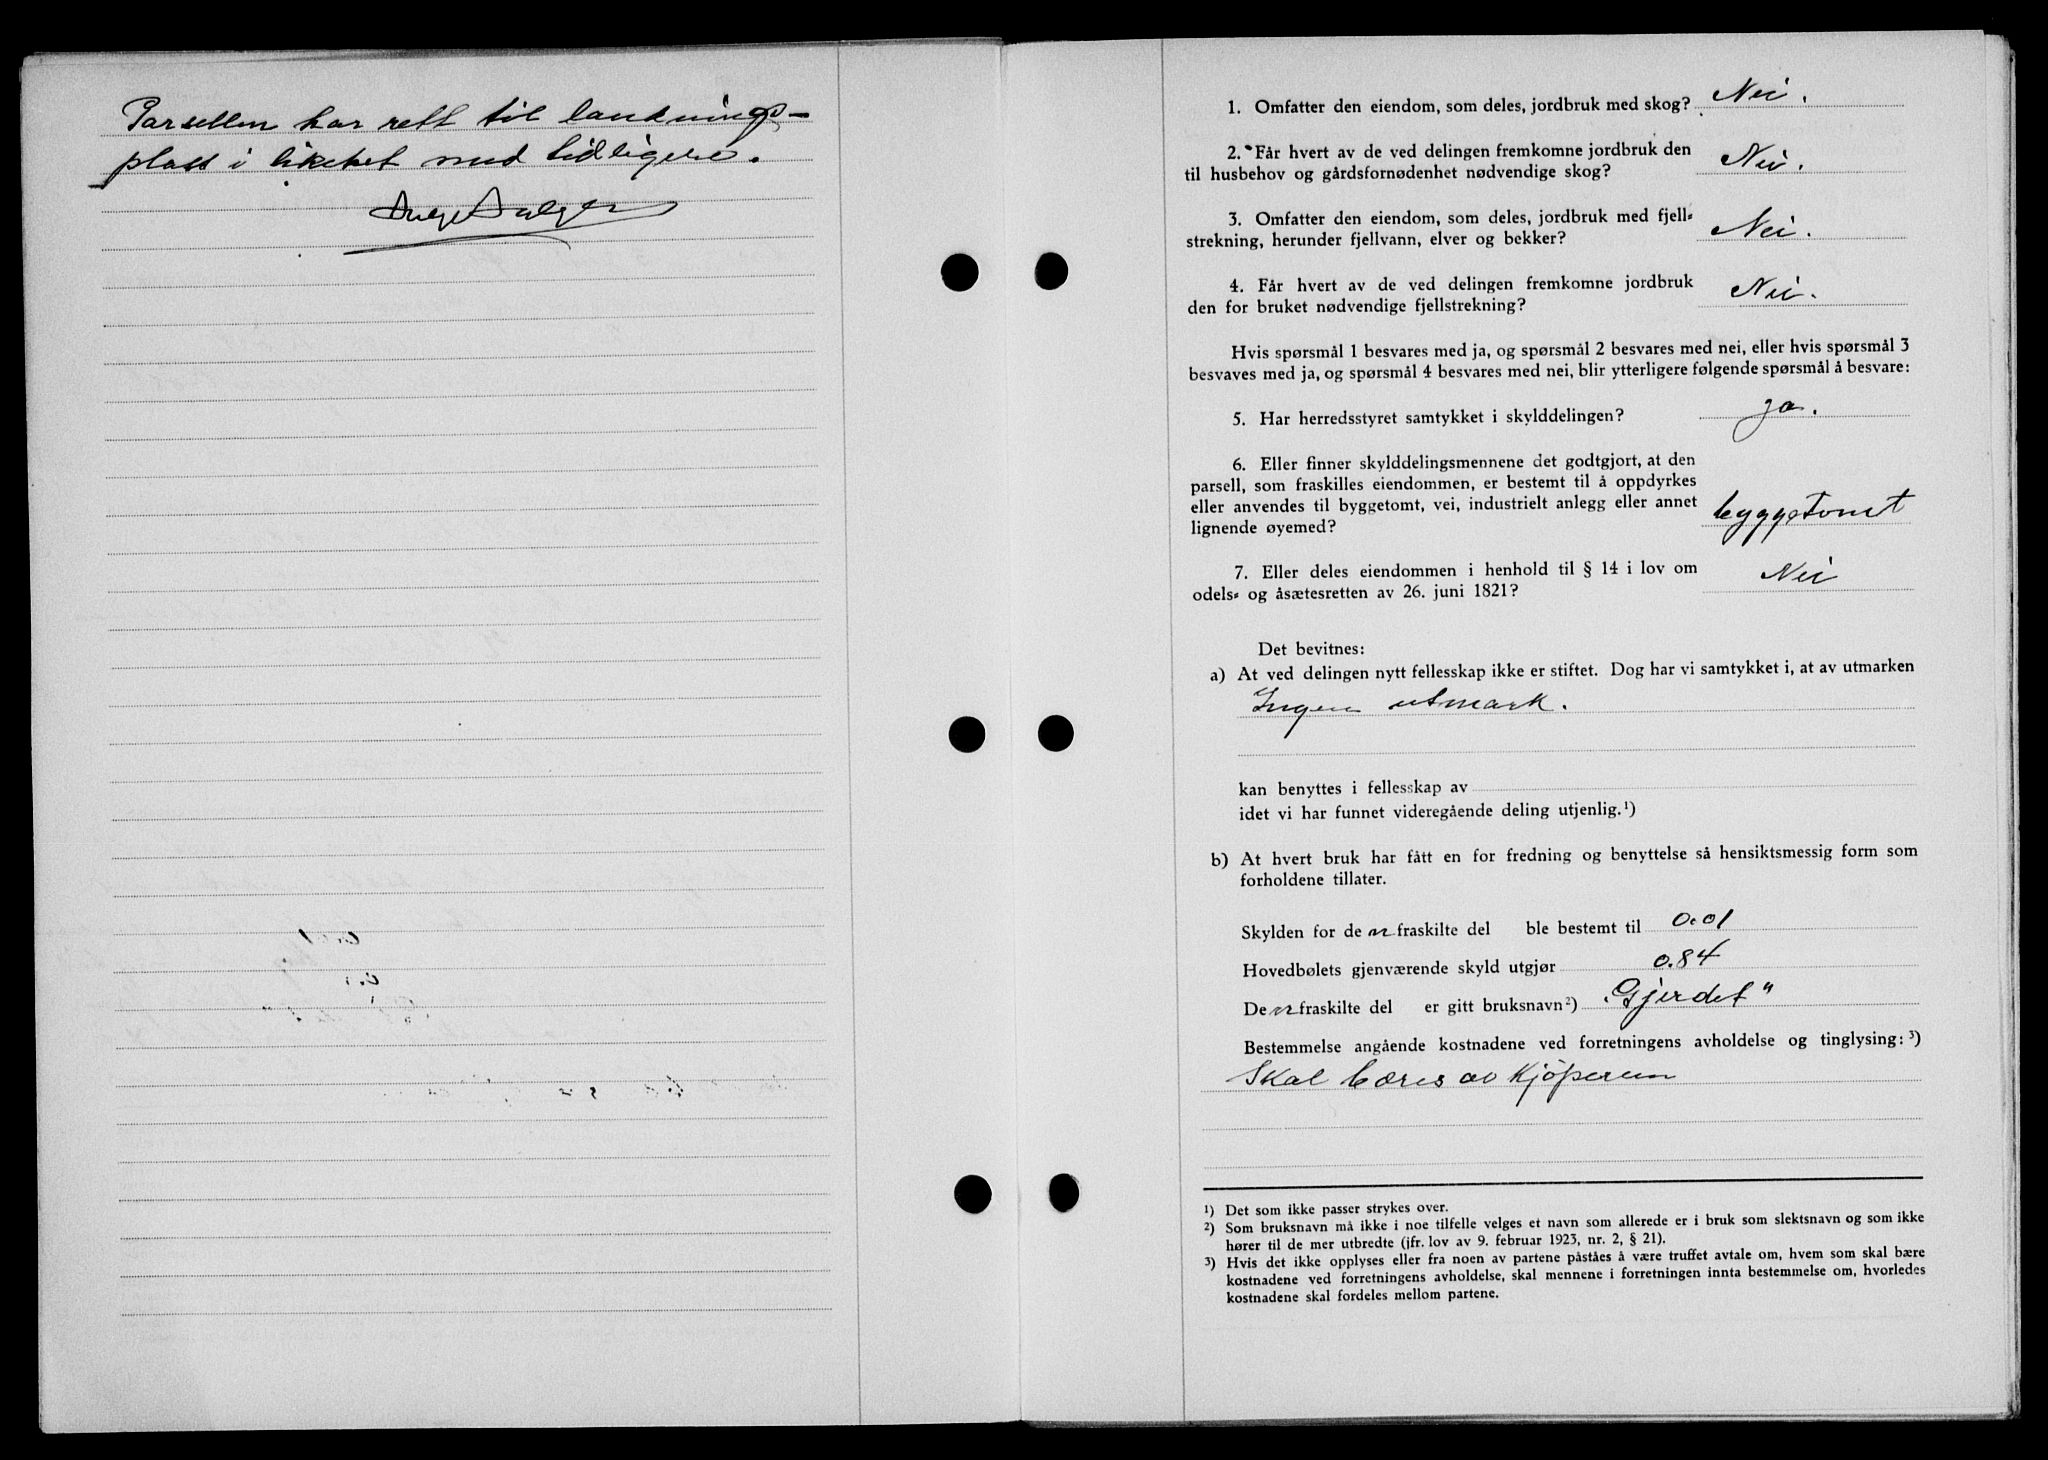 Parsellen har rett til landnings-
plass i likehet med tidligere.
1. Omfatter den eiendom, som deles, jordbruk med skog? Nei.
2. Får hvert av de ved delingen fremkomne jordbruk den
til husbehov og gårdsfornødenhet nødvendige skog? Nei.
3. Omfatter den eiendom, som deles, jordbruk med fjell-
strekning, herunder fjellvann, elver og bekker? Nei.
4. Får hvert av de ved delingen fremkomne jordbruk
den for bruket nødvendige fjellstrekning? Nei.
Hvis spørsmål 1 besvares med ja, og spørsmål 2 besvares med nei, eller hvis spørsmål 3
besvaves med ja, og spørsmål 4 besvares med nei, blir ytterligere følgende spørsmål å besvare:
5. Har herredsstyret samtykket i skylddelingen? ja.
6. Eller finner skylddelingsmennene det godtgjort, at den
parsell, som fraskilles eiendommen, er bestemt til å oppdyrkes
eller anvendes til byggetomt, vei, industrielt anlegg eller annet
lignende øyemed? byggetomt
7. Eller deles eiendommen i henhold til § 14 i lov om
odels- og åsætesretten av 26. juni 1821? Nei
Det bevitnes:
a) At ved delingen nytt fellesskap ikke er stiftet. Dog har vi samtykket i, at av utmarken
Ingen utmark.
kan benyttes i fellesskap av
idet vi har funnet videregående deling utjenlig.¹)
b) At hvert bruk har fått en for fredning og benyttelse så hensiktsmessig form som
forholdene tillater.
Skylden for den fraskilte del ble bestemt til 0.01
Hovedbølets gjenværende skyld utgjør 0.84
Den fraskilte del er gitt bruksnavn²) „Gjerdet"
Bestemmelse angående kostnadene ved forretningens avholdelse og tinglysing:³)
Skal bæres av Kjöperen
¹) Det som ikke passer strykes over.
²) Som bruksnavn må ikke i noe tilfelle velges et navn som allerede er i bruk som slektsnavn og som ikke
hører til de mer utbredte (jfr. lov av 9. februar 1923, nr. 2, § 21).
³) Hvis det ikke opplyses eller fra noen av partene påståes å være truffet avtale om, hvem som skal bære
kostnadene ved forretningens avholdelse, skal mennene i forretningen innta bestemmelse om, hvorledes
kostnadene skal fordeles mellom partene.